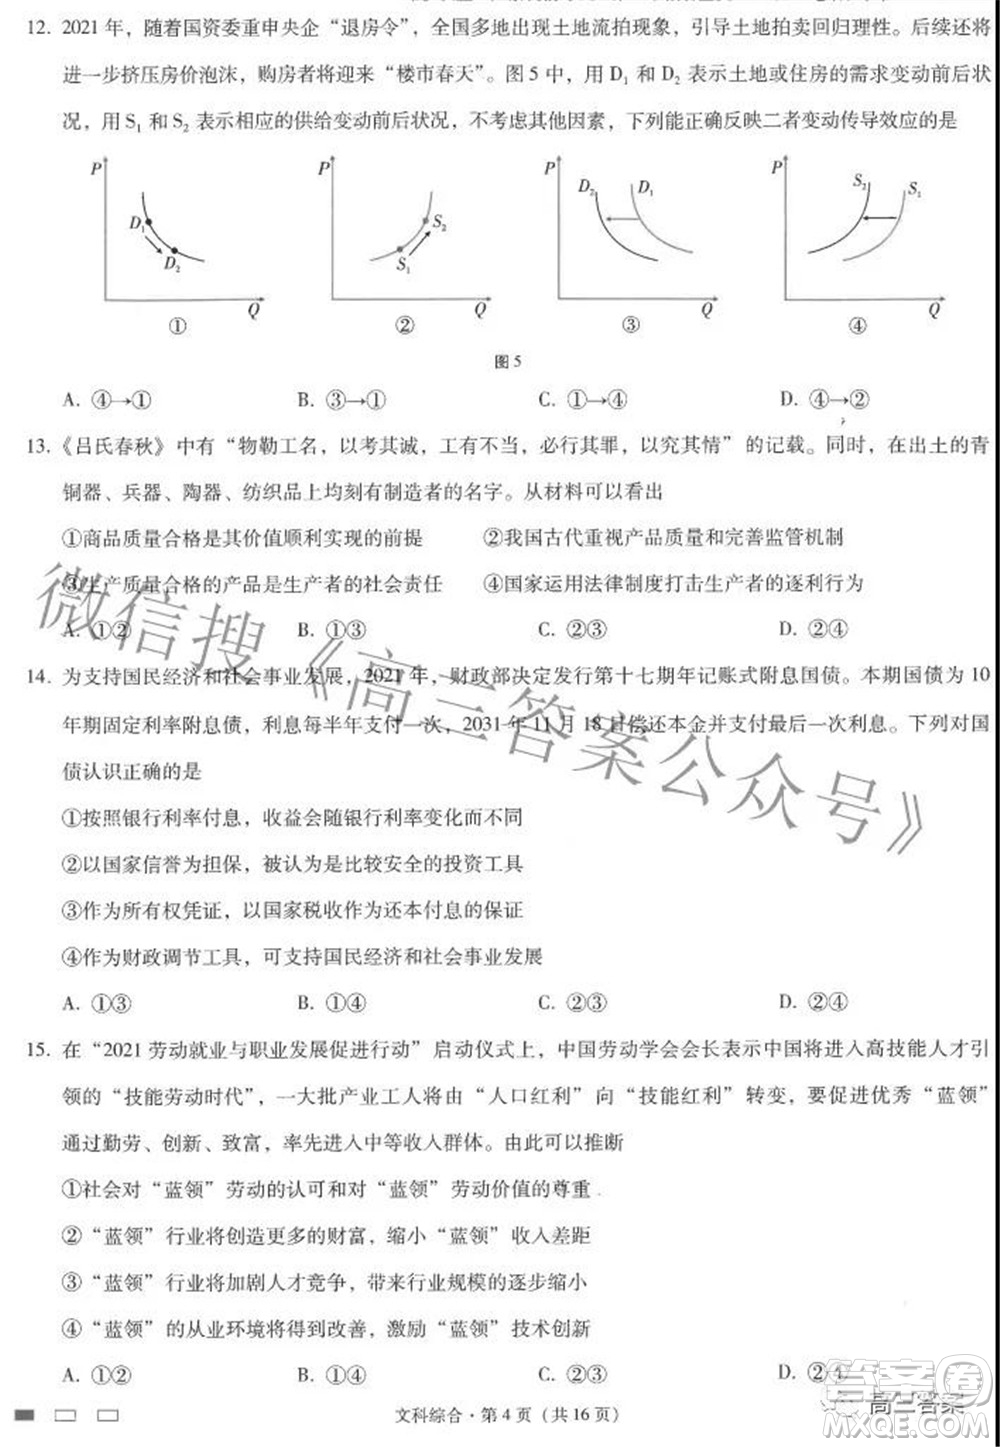 12. 2021 年，随着国资委重申央企“退房令”，全国多地出现土地流拍现象，引导土地拍卖回归理性。后续还将
进一步挤压房价泡沫，购房者将迎来“楼市春天”。图 5 中，用 D₁ 和 D₂ 表示土地或住房的需求变动前后状
况，用 S₁ 和 S₂ 表示相应的供给变动前后状况，不考虑其他因素，下列能正确反映二者变动传导效应的是
P D₁ D₂ Q ①
P S₂ S₁ Q ②
P D₂ D₁ Q ③
P S₂ S₁ Q ④
图 5
A. ④→① B. ③→① C. ①→④ D. ④→②
13.《吕氏春秋》中有“物勒工名，以考其诚，工有不当，必行其罪，以究其情”的记载。同时，在出土的青
铜器、兵器、陶器、纺织品上均刻有制造者的名字。从材料可以看出
①商品质量合格是其价值顺利实现的前提 ②我国古代重视产品质量和完善监管机制
③生产质量合格的产品是生产者的社会责任 ④国家运用法律制度打击生产者的逐利行为
A. ①② B. ①③ C. ②④ D. ③④
14. 为支持国民经济和社会事业发展，2021 年，财政部决定发行第十七期年记账式附息国债。本期国债为 10
年期固定利率附息债，利息每半年支付一次，2031 年 11 月 18 日偿还本金并支付最后一次利息。下列对国
债认识正确的是
①按照银行利率付息，收益会随银行利率变化而变化
②以国家信誉为担保，被认为是比较安全的投资工具
③作为所有权凭证，以国家税收作为还本付息的保证
④作为财政调节工具，可支持国民经济和社会事业发展
A. ①③ B. ①④ C. ②③ D. ②④
15. 在“2021 劳动就业与职业发展促进行动”启动仪式上，中国劳动学会会长表示中国将进入高技能人才引
领的“技能劳动时代”，一大批产业工人将由“人口红利”向“技能红利”转变，要促进优秀“蓝领”
通过勤劳、创新、致富，率先进入中等收入群体。由此可以推断
①社会对“蓝领”劳动的认可和对“蓝领”劳动价值的尊重
②“蓝领”行业将创造更多的财富，缩小“蓝领”收入差距
③“蓝领”行业将加剧人才竞争，带来行业规模的逐步缩小
④“蓝领”的从业环境将得到改善，激励“蓝领”技术创新
A. ①② B. ①④ C. ②③ D. ②④
文科综合·第 4 页（共 16 页）
微信搜《高三答案公众号》
答案圈
高三答案